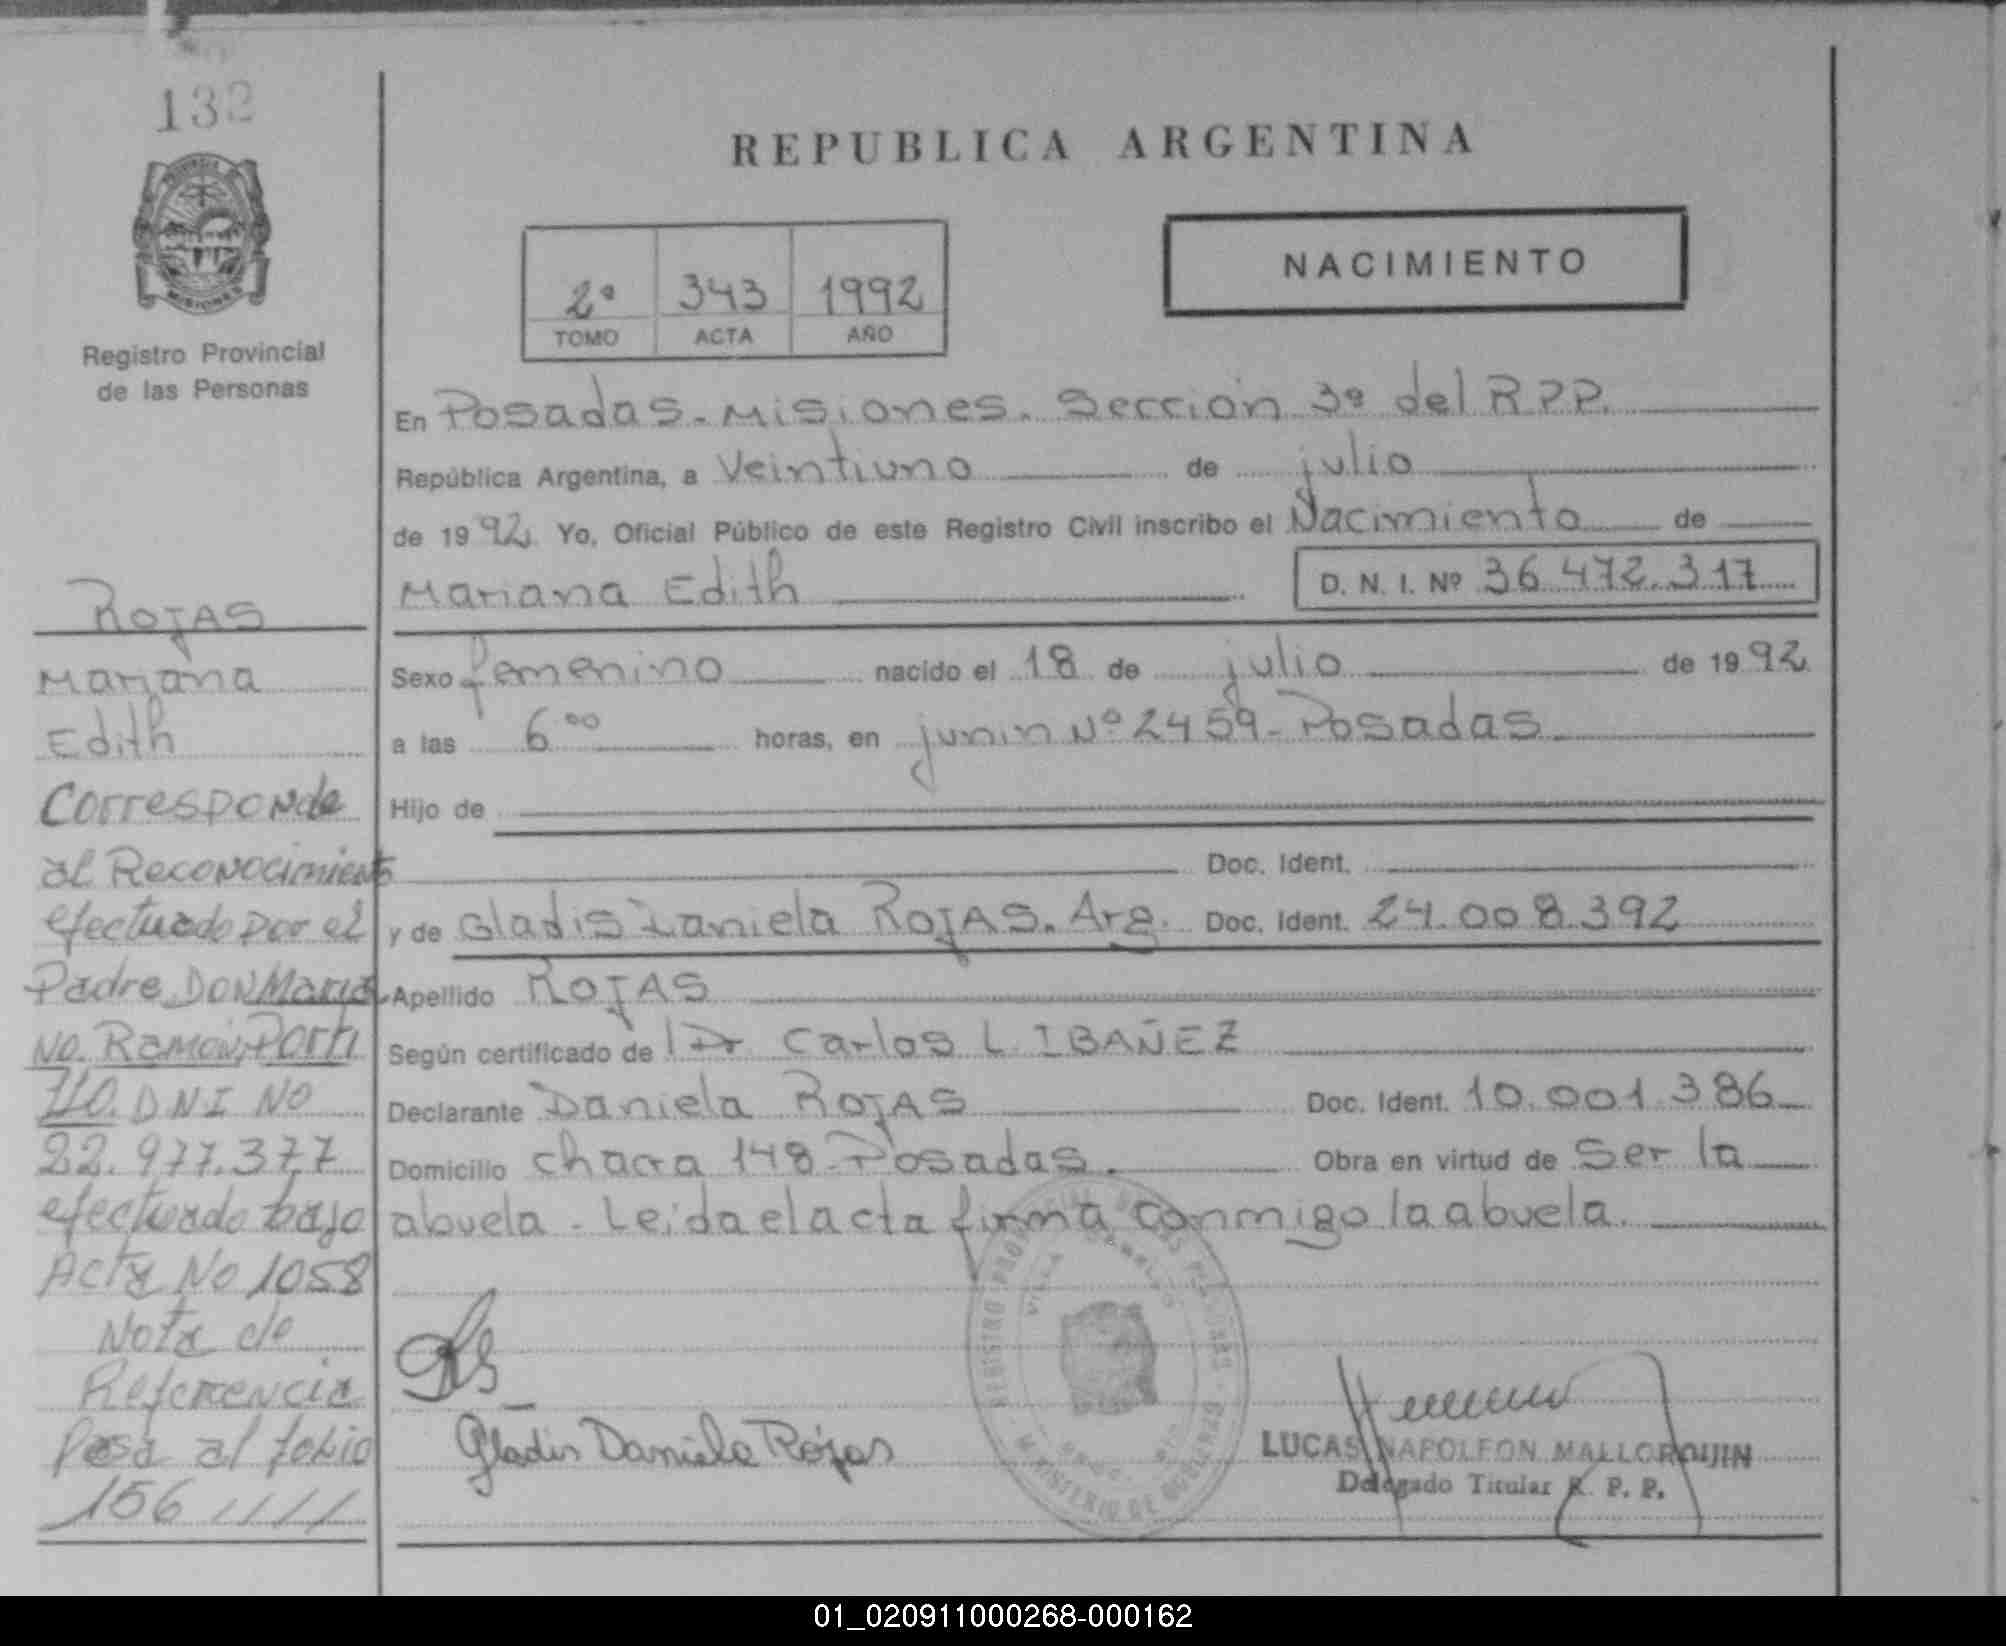 132
PROVINCIA DE
MISIONES
Registro Provincial
de las Personas
REPUBLICA ARGENTINA
NACIMIENTO
2º 343 1992
TOMO ACTA AÑO
En Posadas - Misiones. Sección 3ª del R.P.P.
República Argentina, a Veintiuno de julio
de 1992 Yo, Oficial Público de este Registro Civil inscribo el Nacimiento de
Mariana Edith D. N. I. Nº 36.472.317
Sexo femenino nacido el 18 de julio de 1992
a las 6⁰⁰ horas, en junin Nº 2459 - Posadas
Hijo de
Doc. Ident.
y de Gladis Daniela ROJAS. Arg. Doc. Ident. 24.008.392
Apellido ROJAS
Según certificado de Dr Carlos L. IBAÑEZ
Declarante Daniela ROJAS Doc. Ident. 10.001.386
Domicilio chacra 148 - Posadas. Obra en virtud de Ser la
abuela - Leida el acta firma conmigo la abuela.
Gladis Daniela Rojas
LUCAS NAPOLEON MALLORQUIN
Delegado Titular R. P. P.
REGISTRO PROVINCIAL DE LAS PERSONAS
MINISTERIO DE GOBIERNO
VILLA
ROJAS
Mariana
Edith
Corresponde
al Reconocimiento
efectuado por el
Padre DON Maria
NO. RAMON, PORTI
LLO. DNI NO
22.977.377
efectuado bajo
Acta No 1058
Nota de
Referencia
Pasa al folio
156 ////
01_020911000268-000162